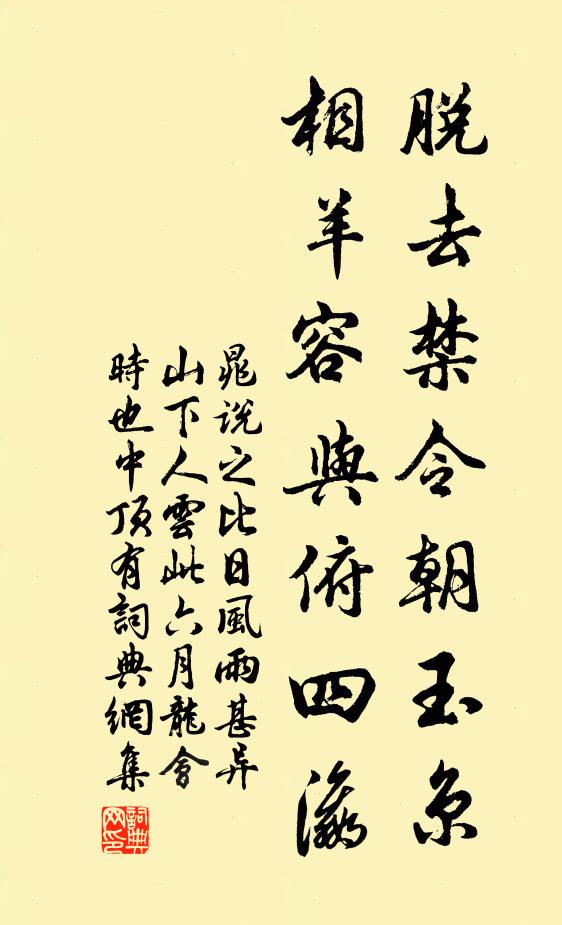 脫去禁令朝玉京
相羊容與俯四瀛
晁說之比日風雨甚异
山下人雲此六月龍會
時也中頂有詞典網集
詞典網印